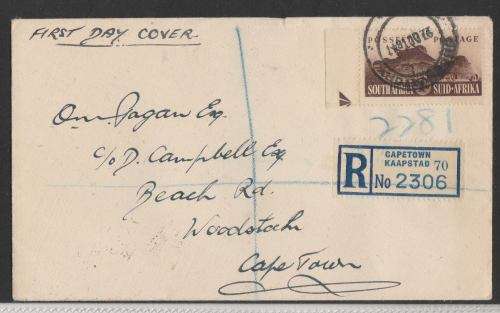 FIRST DAY COVER
POSSEEL POSTAGE
SOUTH AFRICA SUID-AFRIKA
2281
CAPETOWN
KAAPSTAD 70
R No 2306
Pagan Esq
c/o D. Campbell Esq
Beach Rd.
Woodstock
Cape Town